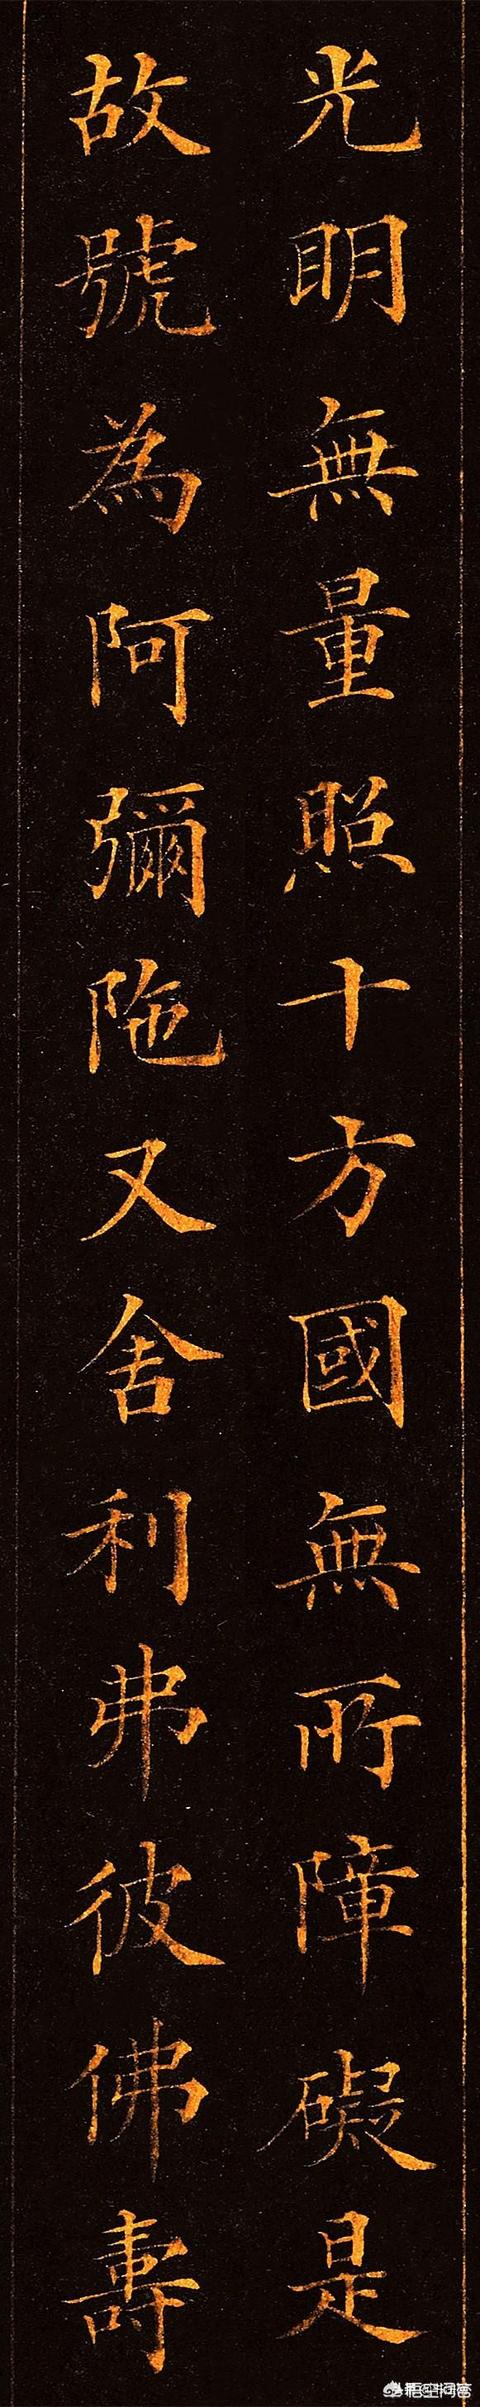 光明無量照十方國無所障礙是
故號為阿彌陁又舍利弗彼佛壽
悟空问答